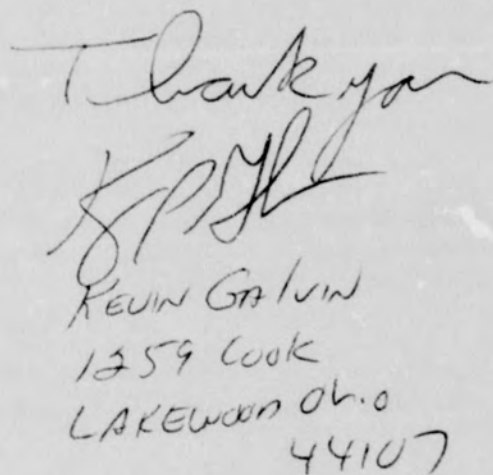 Thank you
KEVIN GALVIN
1259 COOK
LAKEWOOD Ohio
44107